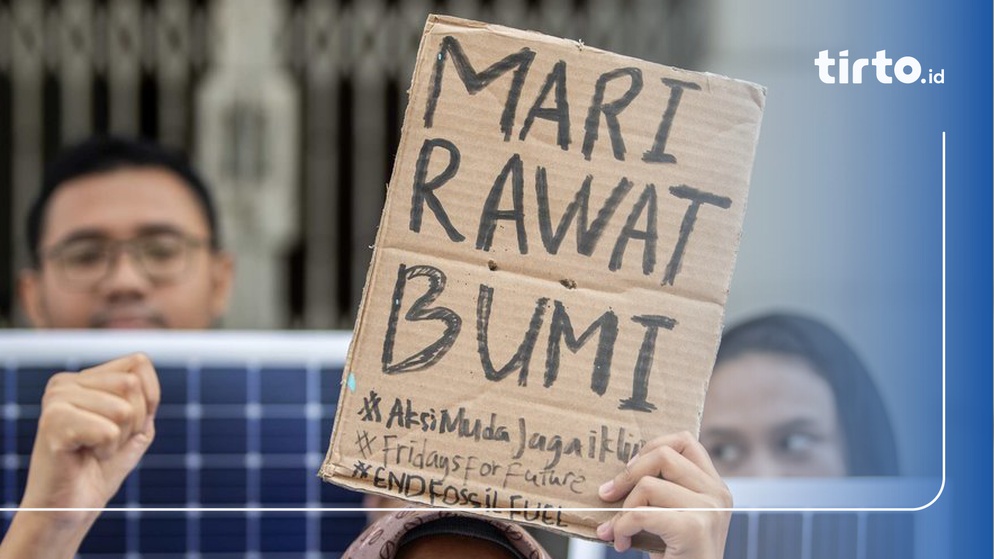 tirto.id
MARI
RAWAT
BUMI
#AksiMuda Jagaiklim
#FridaysForFuture
#ENDFOSSILFUEL